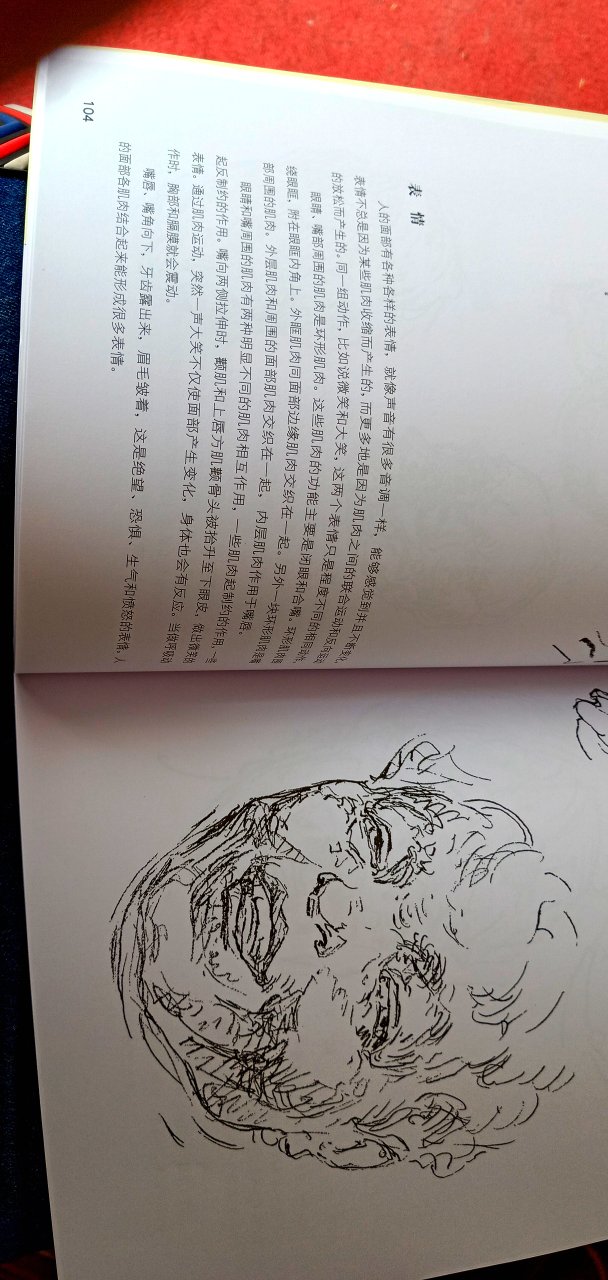 表情
人的面部有各种各样的表情，就像声音有很多音调一样，能够感觉到并且不断变化。
表情不总是因为某些肌肉收缩而产生的，而更多地是因为肌肉之间的联合运动和反向运动
的放松而产生的。同一组动作，比如说微笑和大笑，这两个表情只是程度不同的相同动作。
眼睛、嘴部周围的肌肉是环形肌肉。这些肌肉的功能主要是闭眼和合嘴。环形肌肉围
绕眼眶，附在眼眶内角上。外眶肌肉同面部边缘肌肉交织在一起。另外一块环形肌肉是嘴
部周围的肌肉。外层肌肉和周围的面部肌肉交织在一起，内层肌肉作用于嘴唇。
眼睛和嘴周围的肌肉有两种明显不同的肌肉相互作用，一些肌肉起制约的作用，一些
起反制约的作用。嘴向两侧拉伸时，颧肌和上唇方肌颧骨头被抬升至下眼皮，做出微笑的
表情。通过肌肉运动，突然一声大笑不仅使面部产生变化，身体也会有反应。当做呼吸动
作时，胸部和膈膜就会震动。
嘴唇、嘴角向下，牙齿露出来，眉毛皱着，这是绝望、恐惧、生气和愤怒的表情。人
的面部各肌肉结合起来能形成很多表情。
104